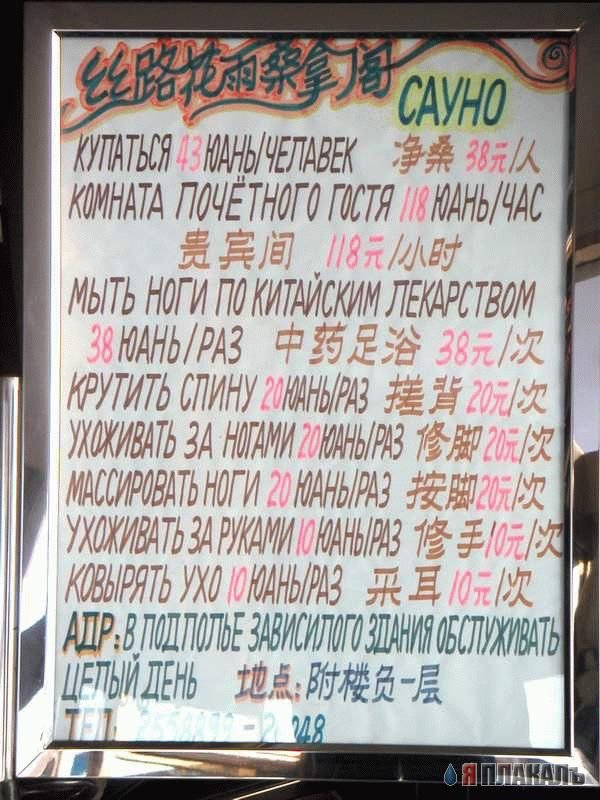 丝路花雨桑拿阁 САУНО
КУПАТЬСЯ 43 ЮАНЬ/ЧЕЛАВЕК 净桑 38元/人
КОМНАТА ПОЧЁТНОГО ГОСТЯ 118 ЮАНЬ/ЧАС
贵宾间 118元/小时
МЫТЬ НОГИ ПО КИТАЙСКИМ ЛЕКАРСТВОМ
38 ЮАНЬ/РАЗ 中药足浴 38元/次
КРУТИТЬ СПИНУ 20ЮАНЬ/РАЗ 搓背20元/次
УХОЖИВАТЬ ЗА НОГАМИ 20ЮАНЬ/РАЗ 修脚20元/次
МАССИРОВАТЬ НОГИ 20 ЮАНЬ/РАЗ 按脚20元/次
УХОЖИВАТЬ ЗА РУКАМИ 10 ЮАНЬ/РАЗ 修手10元/次
КОВЫРЯТЬ УХО 10 ЮАНЬ/РАЗ 采耳 10元/次
АДР: В ПОДПОЛЬЕ ЗАВИСИЛОГО ЗДАНИЯ ОБСЛУЖИВАТЬ
ЦЕЛЫЙ ДЕНЬ 地点: 附楼负一层
ТЕЛ:
Я ПЛАКАЛЪ